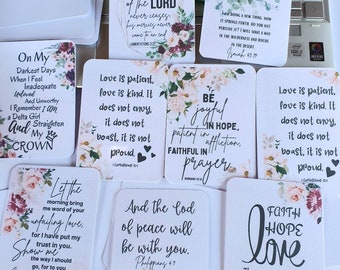 of the LORD
never ceases;
his mercies never
come to an end
LAMENTATIONS 3:22
AM DOING A NEW THING; NOW
IT SPRINGS FORTH, DO YOU NOT
PERCEIVE IT? I WILL MAKE A WAY
IN THE WILDERNESS AND RIVERS
IN THE DESERT.
Isaiah 43:19
On My
Darkest Days
When I Feel
Inadequate
Unloved
And Unworthy
I Remember I Am A
Delta Girl
And I Straighten
My
CROWN
Love is patient,
love is kind. It
does not envy,
it does not
boast, it is not
proud.
1 Corinthians 13:4
BE
joyful
IN HOPE,
patient in
affliction,
FAITHFUL IN
prayer
Love is patient,
love is kind. It
does not envy,
it does not
boast, it is not
proud.
1 Corinthians 13:4
Let the
morning bring
me word of your
unfailing love,
for I have put my
trust in you.
Show me
the way I should
go, for to you
And the God
of peace will
be with you.
Philippians 4:9
FAITH
HOPE
love